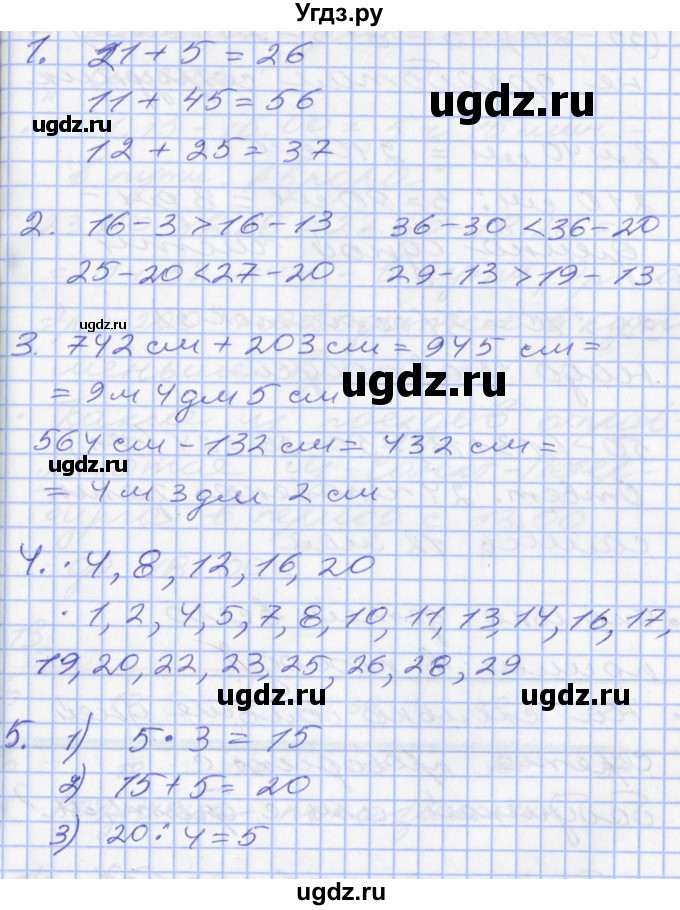 Угдз.ру
1. 21 + 5 = 26
ugdz.ru
11 + 45 = 56
ugdz.ru
12 + 25 = 37
2. 16 - 3 > 16 - 13 36 - 30 < 36 - 20
25 - 20 < 27 - 20 29 - 13 > 19 - 13
ugdz.ru
3. 742 см + 203 см = 945 см =
ugdz.ru
= 9 м 4 дм 5 см
564 см - 132 см = 432 см =
ugdz.ru
= 4 м 3 дм 2 см
4. · 4, 8, 12, 16, 20
· 1, 2, 4, 5, 7, 8, 10, 11, 13, 14, 16, 17,
19, 20, 22, 23, 25, 26, 28, 29
ugdz.ru ugdz.ru
5. 1) 5 · 3 = 15
2) 15 + 5 = 20
3) 20 : 4 = 5
ugdz.ru